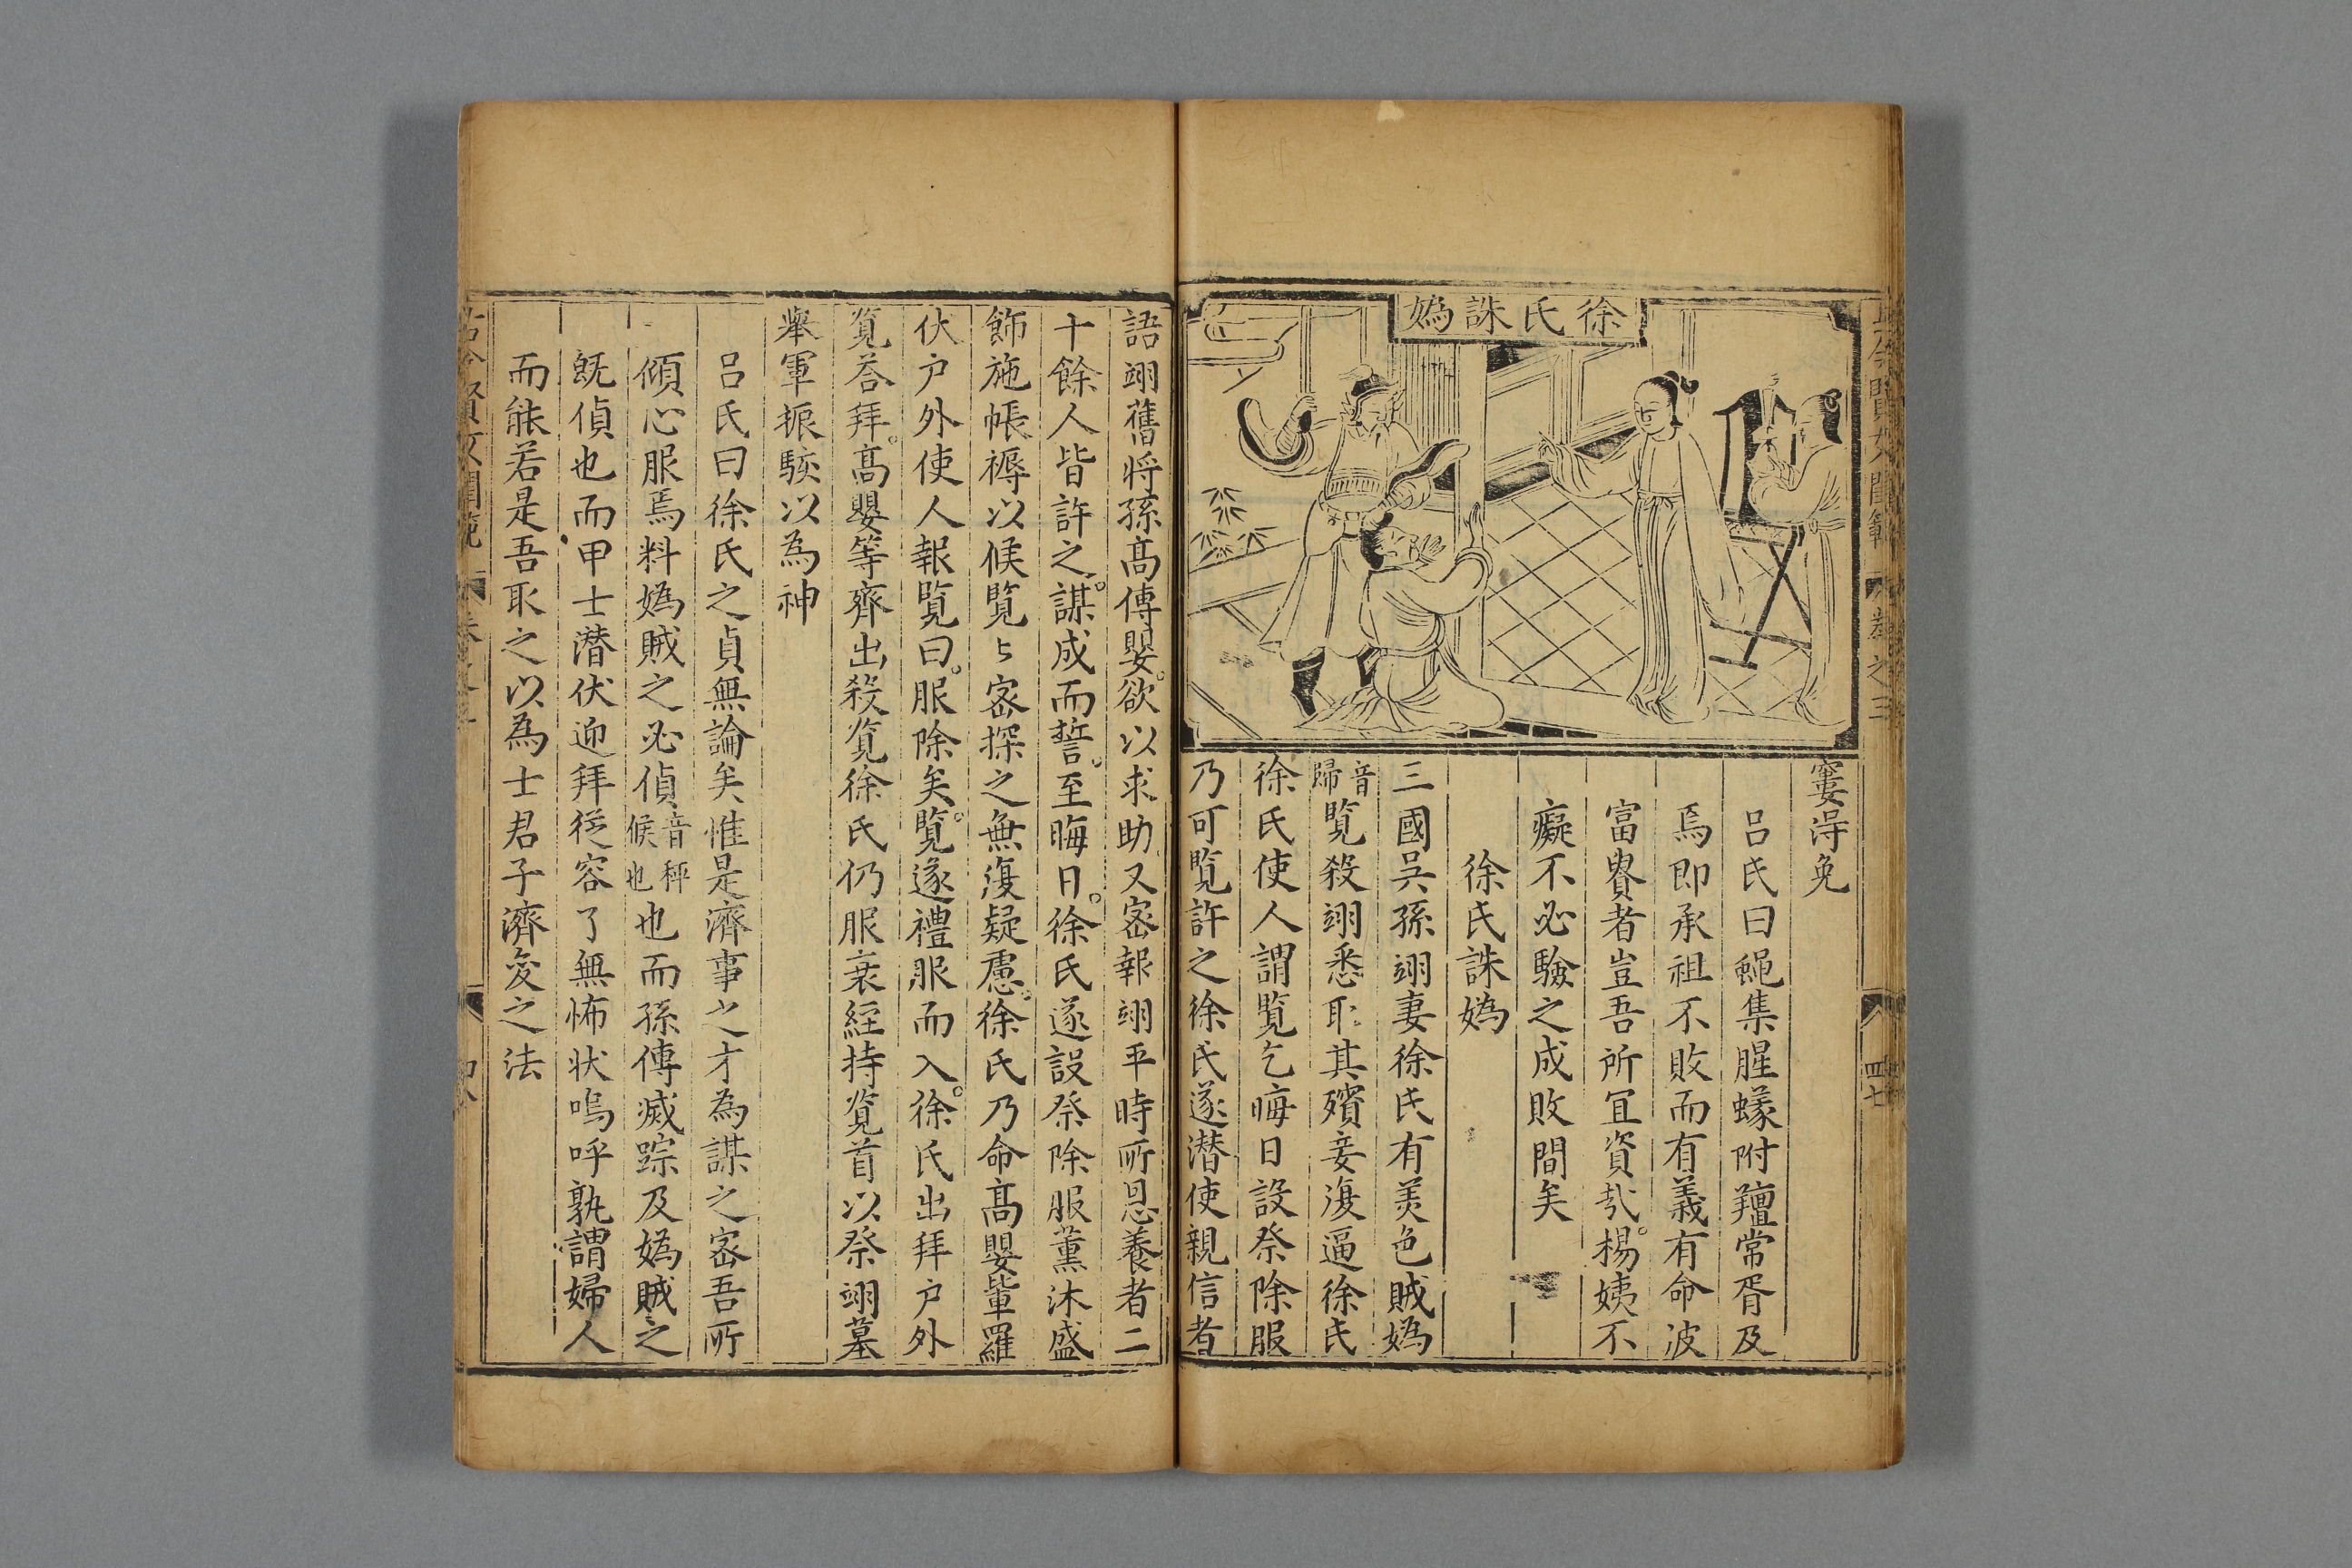 徐氏誅嬀
窶淂免
呂氏曰蠅集腥蟻附羶常胥及
焉即承祖不敗而有義有命波
富貴者豈吾所宜資㢤楊姨不
癡不必驗之成敗間矣
徐氏誅嬀
三國吳孫翊妻徐氏有美色賊嬀
音歸覽殺翊悉取其殯妾復逼徐氏
徐氏使人謂覽乞晦日設祭除服
乃可覽許之徐氏遂潜使親信者
語翊舊将孫高傅嬰欲以求助又宻報翊平時所恩養者二
十餘人皆許之謀成而誓至晦日徐氏遂設祭除服薰沐盛
飾施帳褥以候覽〻宻探之無復疑慮徐氏乃命高嬰輩羅
伏户外使人報覽曰服除矣覽遂禮服而入徐氏出拜户外
覧荅拜高嬰等齊出殺覧徐氏仍服衰絰持覧首以祭翊墓
舉軍振駭以為神
呂氏曰徐氏之貞無論矣惟是濟事之才為謀之宻吾所
傾心服焉料嬀賊之必偵音秤候也也而孫傅滅踪及嬀賊之
既偵也而甲士潜伏迎拜從容了無怖状嗚呼孰謂婦人
而能若是吾取之以為士君子濟变之法
古今賢女閨範
卷之三
四七